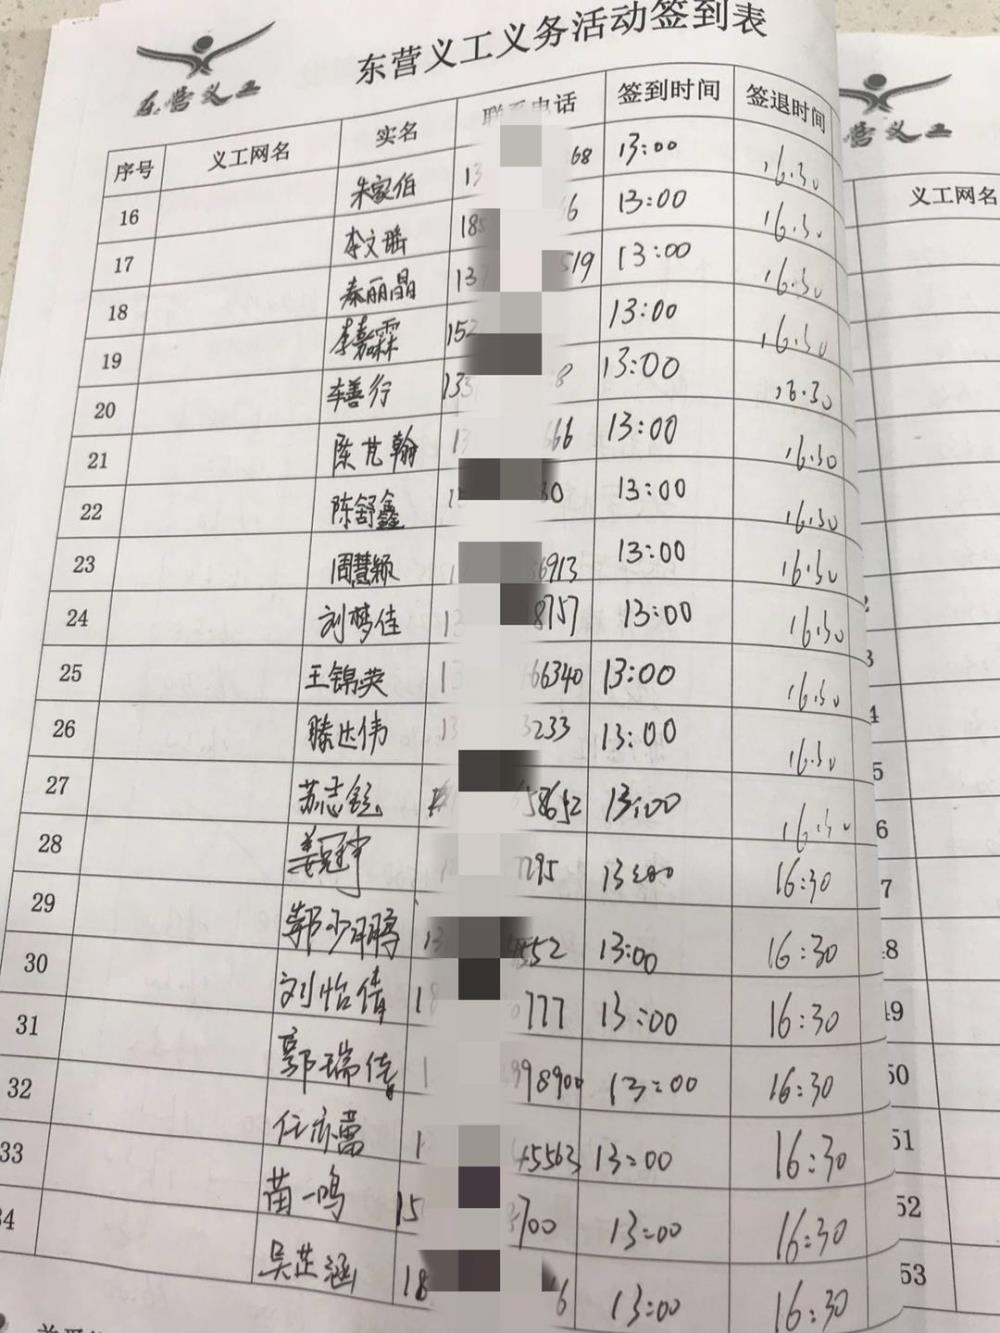 东营义工义务活动签到表
东营义工
序号 义工网名 实名 联系电话 签到时间 签退时间
16 朱家伯 13 68 13:00 16.30
17 李文瑞 185 66 13:00 16.30
18 秦丽晶 137 519 13:00 16.30
19 李嘉霖 152 13:00 16.30
20 车善行 133 8 13:00 16.30
21 陈芃翰 13 666 13:00 16.30
22 陈舒鑫 80 13:00 16.30
23 周慧颖 1 6913 13:00 16.30
24 刘梦佳 13 8757 13:00 16.30
25 王锦英 13 66340 13:00 16.30
26 滕达伟 13 3233 13:00 16.30
27 苏志钰 58652 13:00 16.30
28 姜冠宇 1 7295 13:00 16:30
29 郭少鹏 13 4552 13:00 16:30
30 刘怡倩 18 0777 13:00 16:30
31 郭瑞倩 1 998900 13:00 16:30
32 任依蕾 1 45563 13:00 16:30
33 苗一鸣 15 3700 13:00 16:30
34 吴芷涵 18 6 13:00 16:30
营义工
义工网名
2
3
4
5
6
7
48
49
50
51
52
53